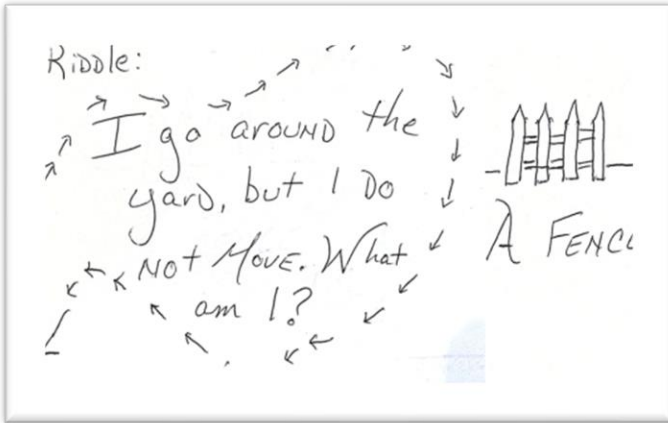 Riddle:
I go around the
yard, but I Do
Not Move. What
am I?
A FENC